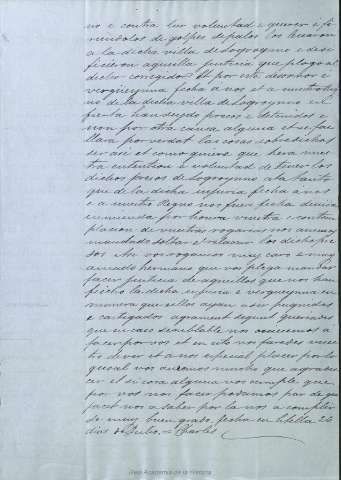 no e contra lur voluntad e querer e fi
riendolos de golpes de palos los levaron
a la dicha villa de Logroynno e desi
ficieron aquella justicia que plogo al
dicho corregidor. Et por esta desonor e
vergüeynna fecha a nos et a nuestro Rey
no de la dicha villa de Logroynno en
fuerta han seydo presos e detenidos e
non por otra causa alguna et se fa
llara por verdat las cosas sobredichas
ser assi et como quiera que hera nues
tra entention e voluntad de tener los
dichos presos de Logroynno ata tanto
que de la dicha injuria fecha a nos
e a nuestro Regno nos fues fecha devida
enmienda por honra vuestra e contem
placion de vuestras rogarias nos avemos
mandado soltar e relaxar los dichos pre
sos. An vos rogamos muy caro e muy
amado hermano que vos plega mandar
facer justicia de aquellos que nos han
fecho la dicha injuria e vergueynna en
manera que ellos ayan a ser pugnidos
e castigados agrament segunt querriades
que en caso semblable nos oviessemos á
facer por vos et en esto vos faredes vues
to dever et a nos especial placer por lo
qual vos daremos mucho que agrades
cer et si cosa alguna vos cumple que
por vos nos facer podamos par de que
facet nos a saber por la nos a complir
de muy buen grado, fecha en Estella 24
dias de Julio. = Charles
Real Academia de la Historia